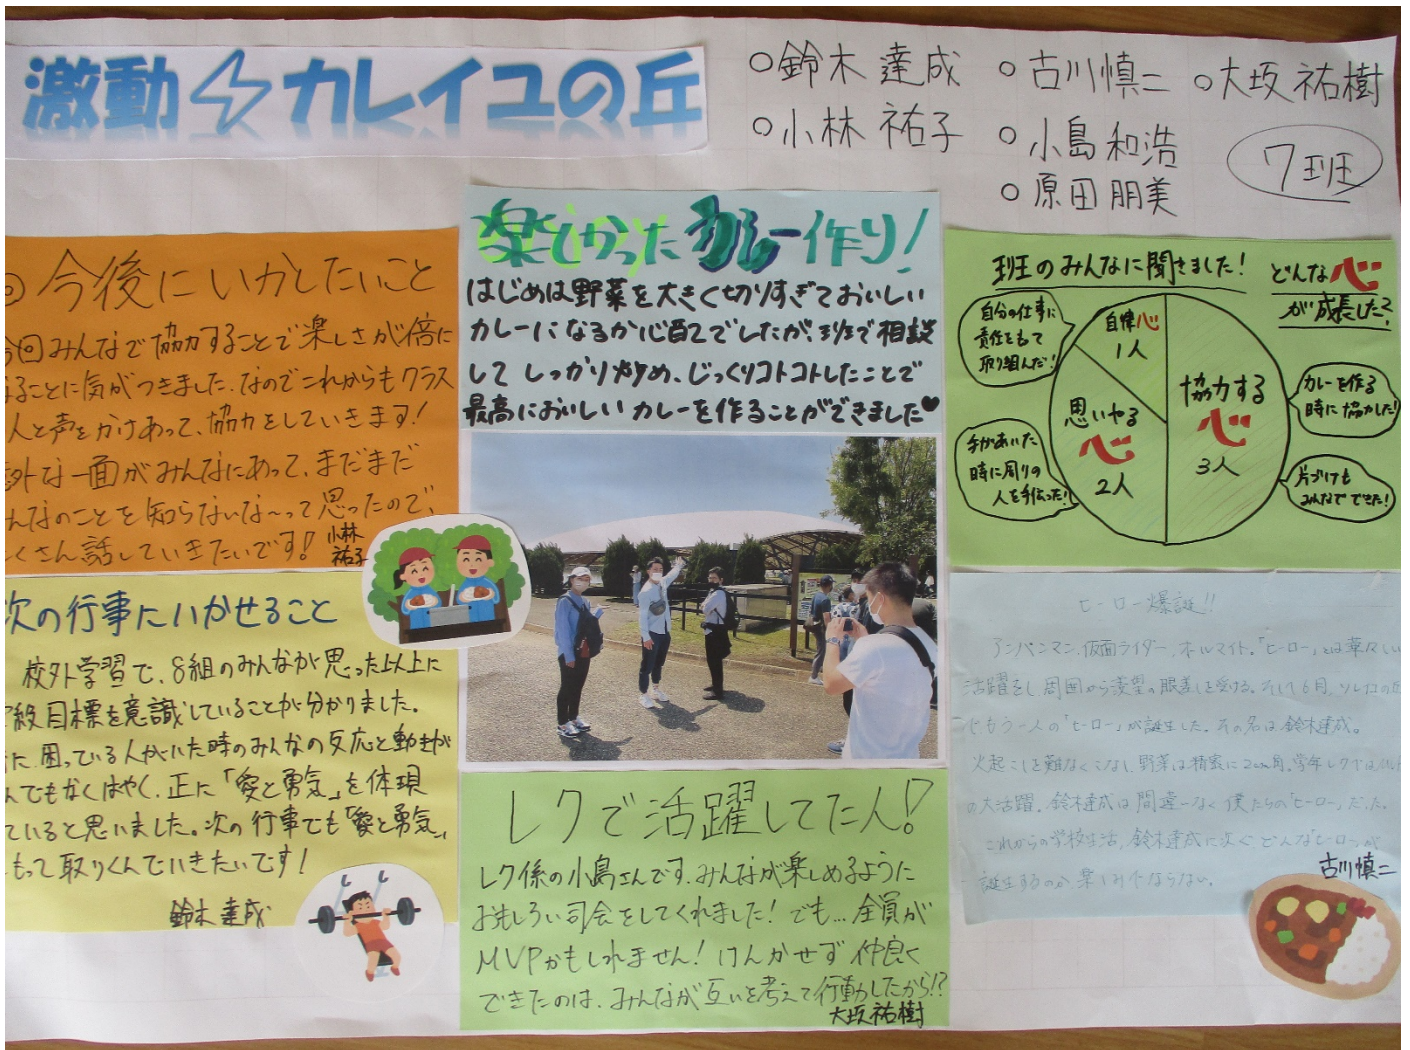 激動⚡カレイユの丘
○鈴木 達成
○古川慎二
○大坂 祐樹
○小林 祐子
○小島 和浩
○原田 朋美
7班
今後にいかしたいこと
今回みんなで協力することで楽しさが倍に
なることに気がつきました。なのでこれからもクラス
人と声をかけあって、協力をしていきます!
意外な一面がみんなにあって、まだまだ
みんなのことを知らないな〜って思ったので、
たくさん話していきたいです!
小林
祐子
次の行事にいかせること
校外学習で、8組のみんなが思った以上に
学級目標を意識していることが分かりました。
また、困っている人がいた時のみんなの反応と動きが
とてもなくはやく、正に「愛と勇気」を体現
ていると思いました。次の行事でも「愛と勇気」
もって取りくんでいきたいです!
鈴木 達成
楽しかったカレー作り!
はじめは野菜を大きく切りすぎておいしい
カレーになるか心配でしたが、班で相談
して しっかり炒め、じっくりコトコトしたことで
最高においしい カレーを作ることができました♥
レクで活躍してた人!?
レク係の小島さんです。みんなが楽しめるように
おもしろい司会をしてくれました! でも… 全員が
MVPかもしれません! けんかせず 仲良く
できたのは、みんなが互いを考えて行動したから!?
大坂祐樹
班のみんなに聞きました!
どんな心
が成長した?
自分の仕事に
責任をもって
取り組んだ!
自律心
1人
協力する
心
3人
思いやる
心
2人
カレーを作る
時に協力した!
手があいた
時に周りの
人を手伝った!
片づけも
みんなでできた!
ヒーロー爆誕!!
アンパンマン、仮面ライダー、オールマイト。「ヒーロー」とは華々しい
活躍をし、周囲から羨望の眼差しを受ける。そして6月、ソレイユの丘
でもう一人の「ヒーロー」が誕生した。その名は鈴木達成。
火起こしを難なくこなし、野菜は精密に2cm角。学年レクでは
の大活躍。鈴木達成は間違いなく僕たちの「ヒーロー」だった。
これからの学校生活、鈴木達成に次ぐどんな「ヒーロー」が
誕生するのか、楽しみでならない。
古川慎二